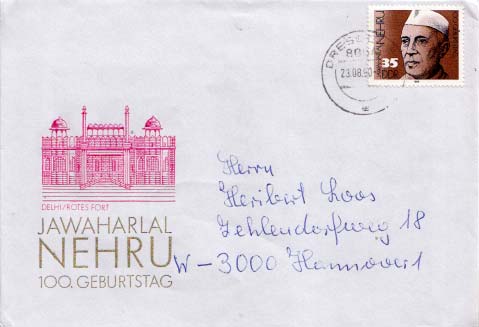 NEHRU
35
DDR
23.08.90
DELHI/ROTES FORT
JAWAHARLAL
NEHRU
100. GEBURTSTAG
Herrn
Heribert Loos
Zehlendorfweg 18
W-3000 Hannover 1